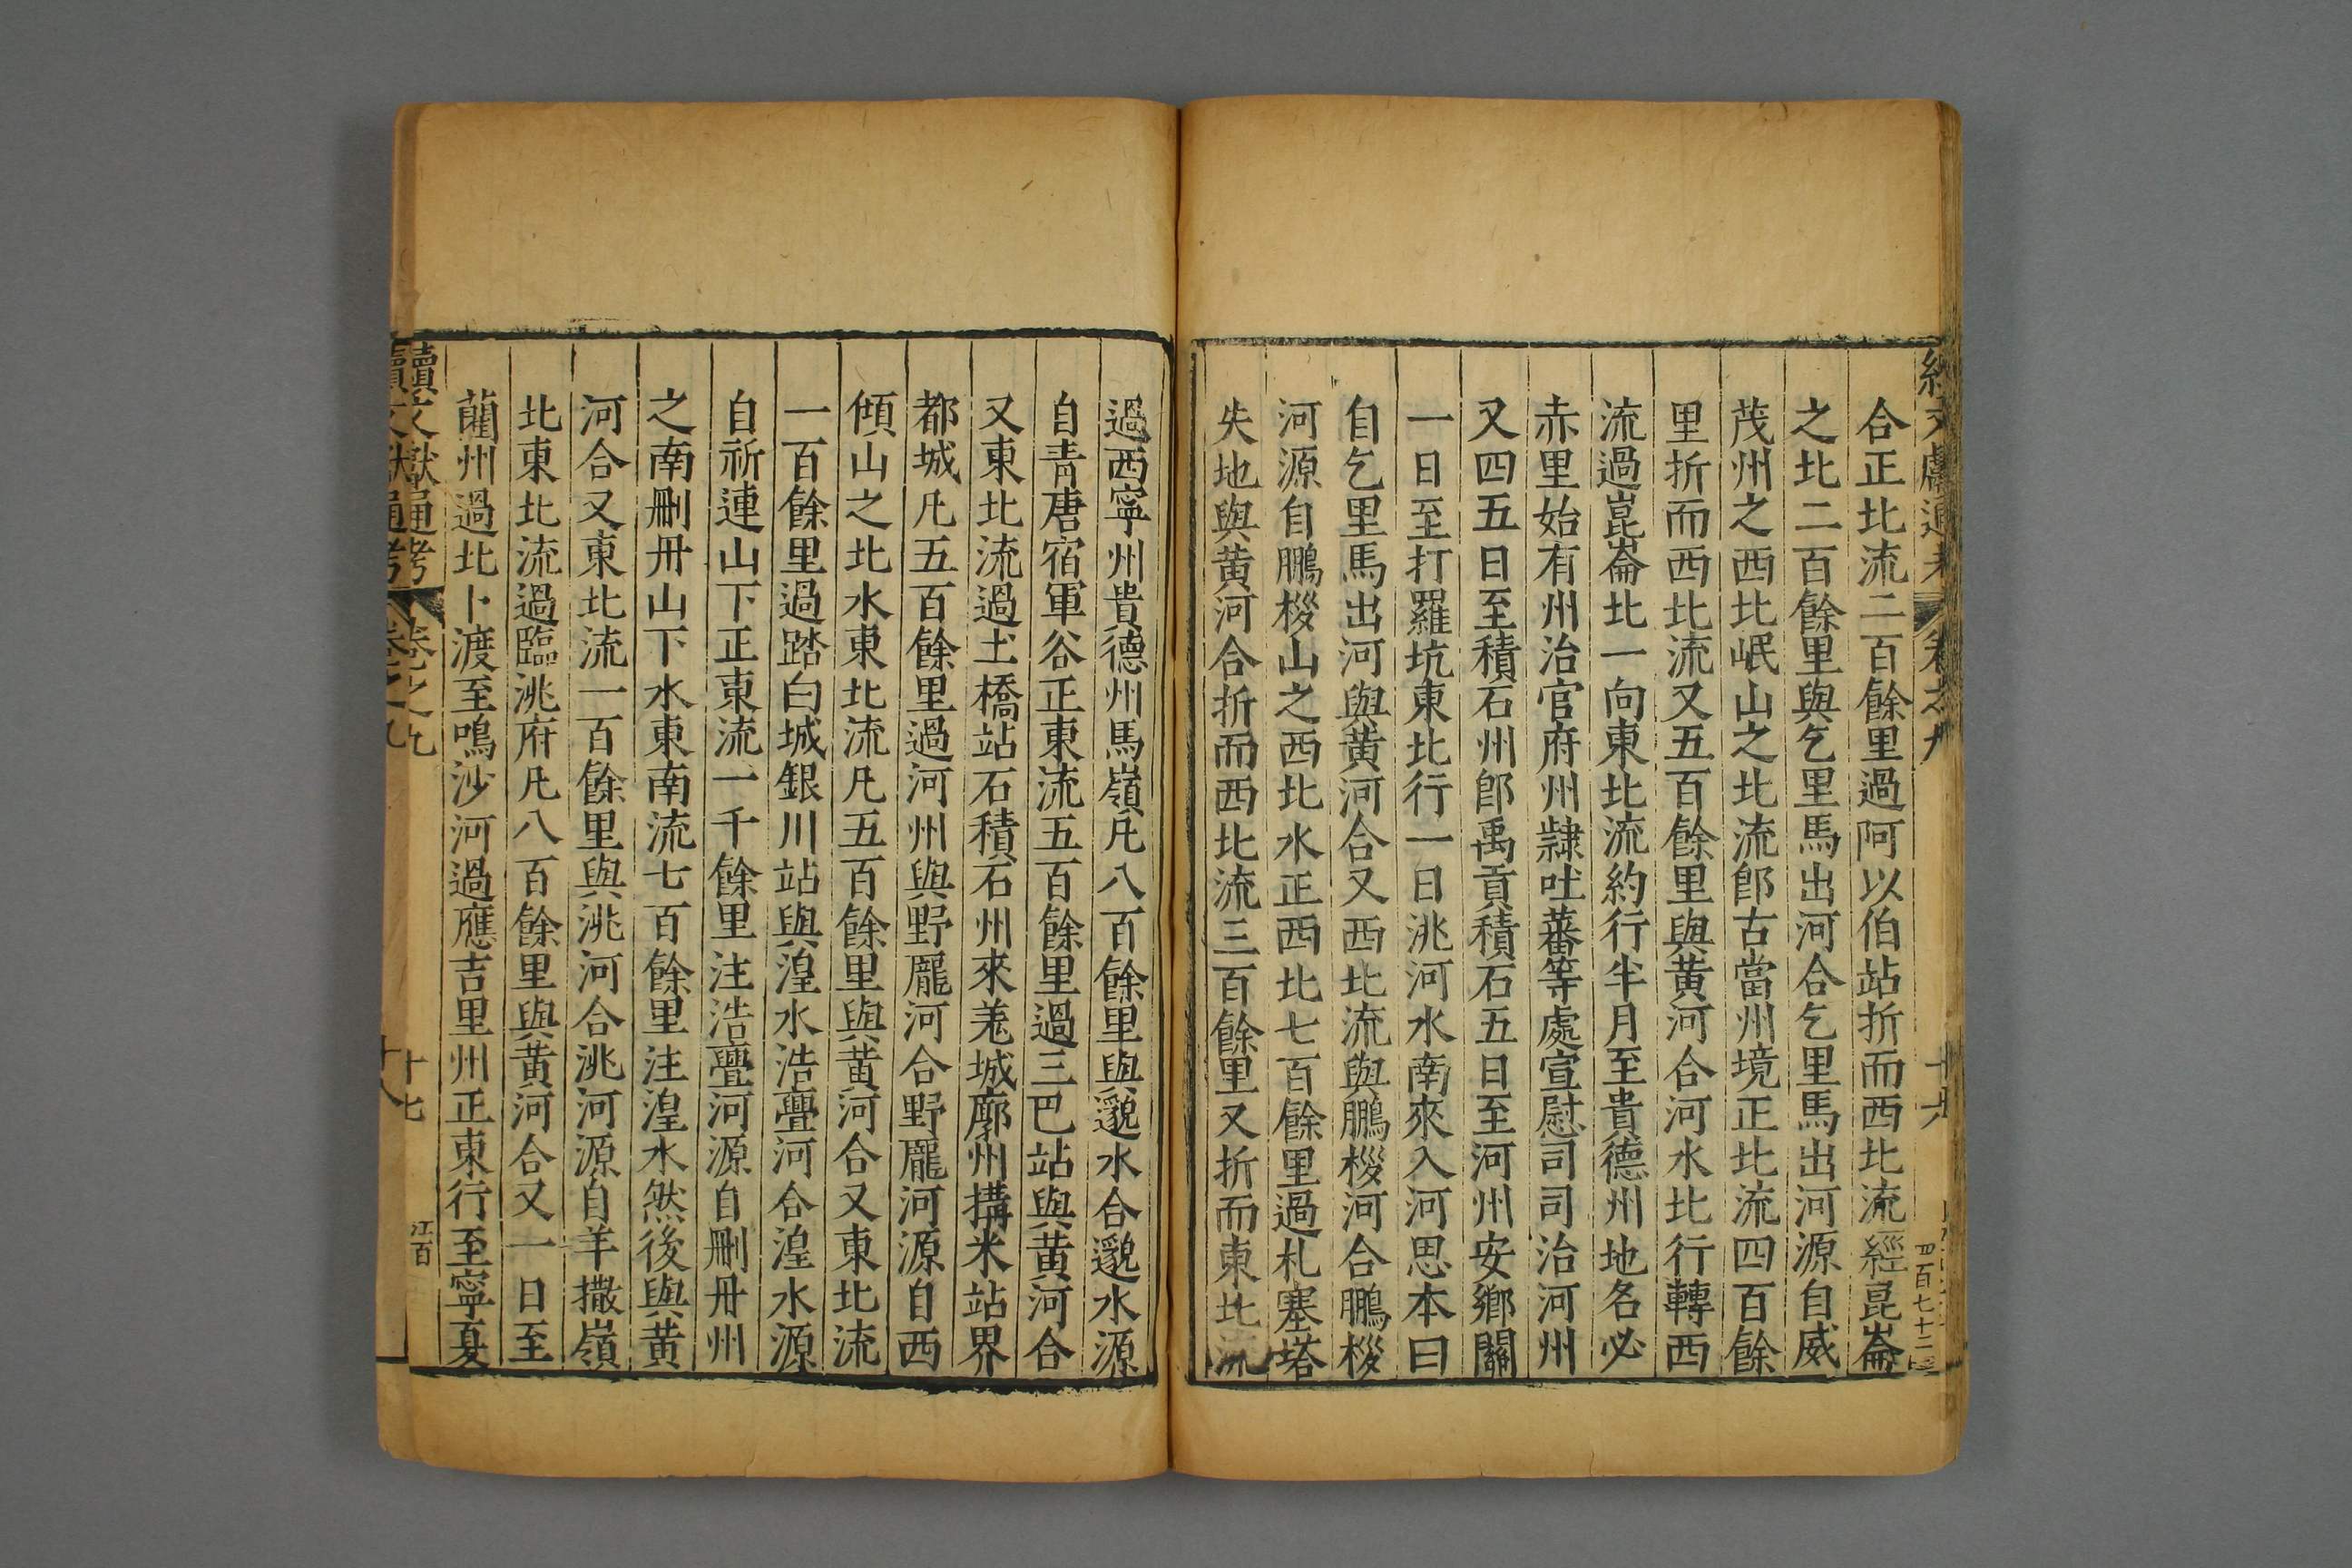 合正北流二百餘里過阿以伯站折而西北流經崑崙
之北二百餘里與乞里馬出河合乞里馬出河源自威
茂州之西北岷山之北流卽古當州境正北流四百餘
里折而西北流又五百餘里與黃河合河水北行轉西
流過崑崙北一向東北流約行半月至貴德州地名必
赤里始有州治官府州隸吐蕃等處宣慰司司治河州
又四五日至積石州卽禹貢積石五日至河州安鄉關
一日至打羅坑東北行一日洮河水南來入河思本曰
自乞里馬出河與黃河合又西北流與鵬桵河合鵬桵
河源自鵬桵山之西北水正西北七百餘里過札塞塔
失地與黃河合折而西北流三百餘里又折而東北流
過西寧州貴德州馬嶺凡八百餘里與邈水合邈水源
自青唐宿軍谷正東流五百餘里過三巴站與黃河合
又東北流過土橋站石積石州來羌城廓州搆米站界
都城凡五百餘里過河州與野龐河合野龐河源自西
傾山之北水東北流凡五百餘里與黃河合又東北流
一百餘里過踏白城銀川站與湟水浩亹河合湟水源
自祈連山下正東流一千餘里注浩亹河源自刪丹州
之南刪丹山下水東南流七百餘里注湟水然後與黃
河合又東北流一百餘里與洮河合洮河源自羊撒嶺
北東北流過臨洮府凡八百餘里與黃河合又一日至
蘭州過北卜渡至鳴沙河過應吉里州正東行至寧夏
續文獻通考 卷之九 十七 江百